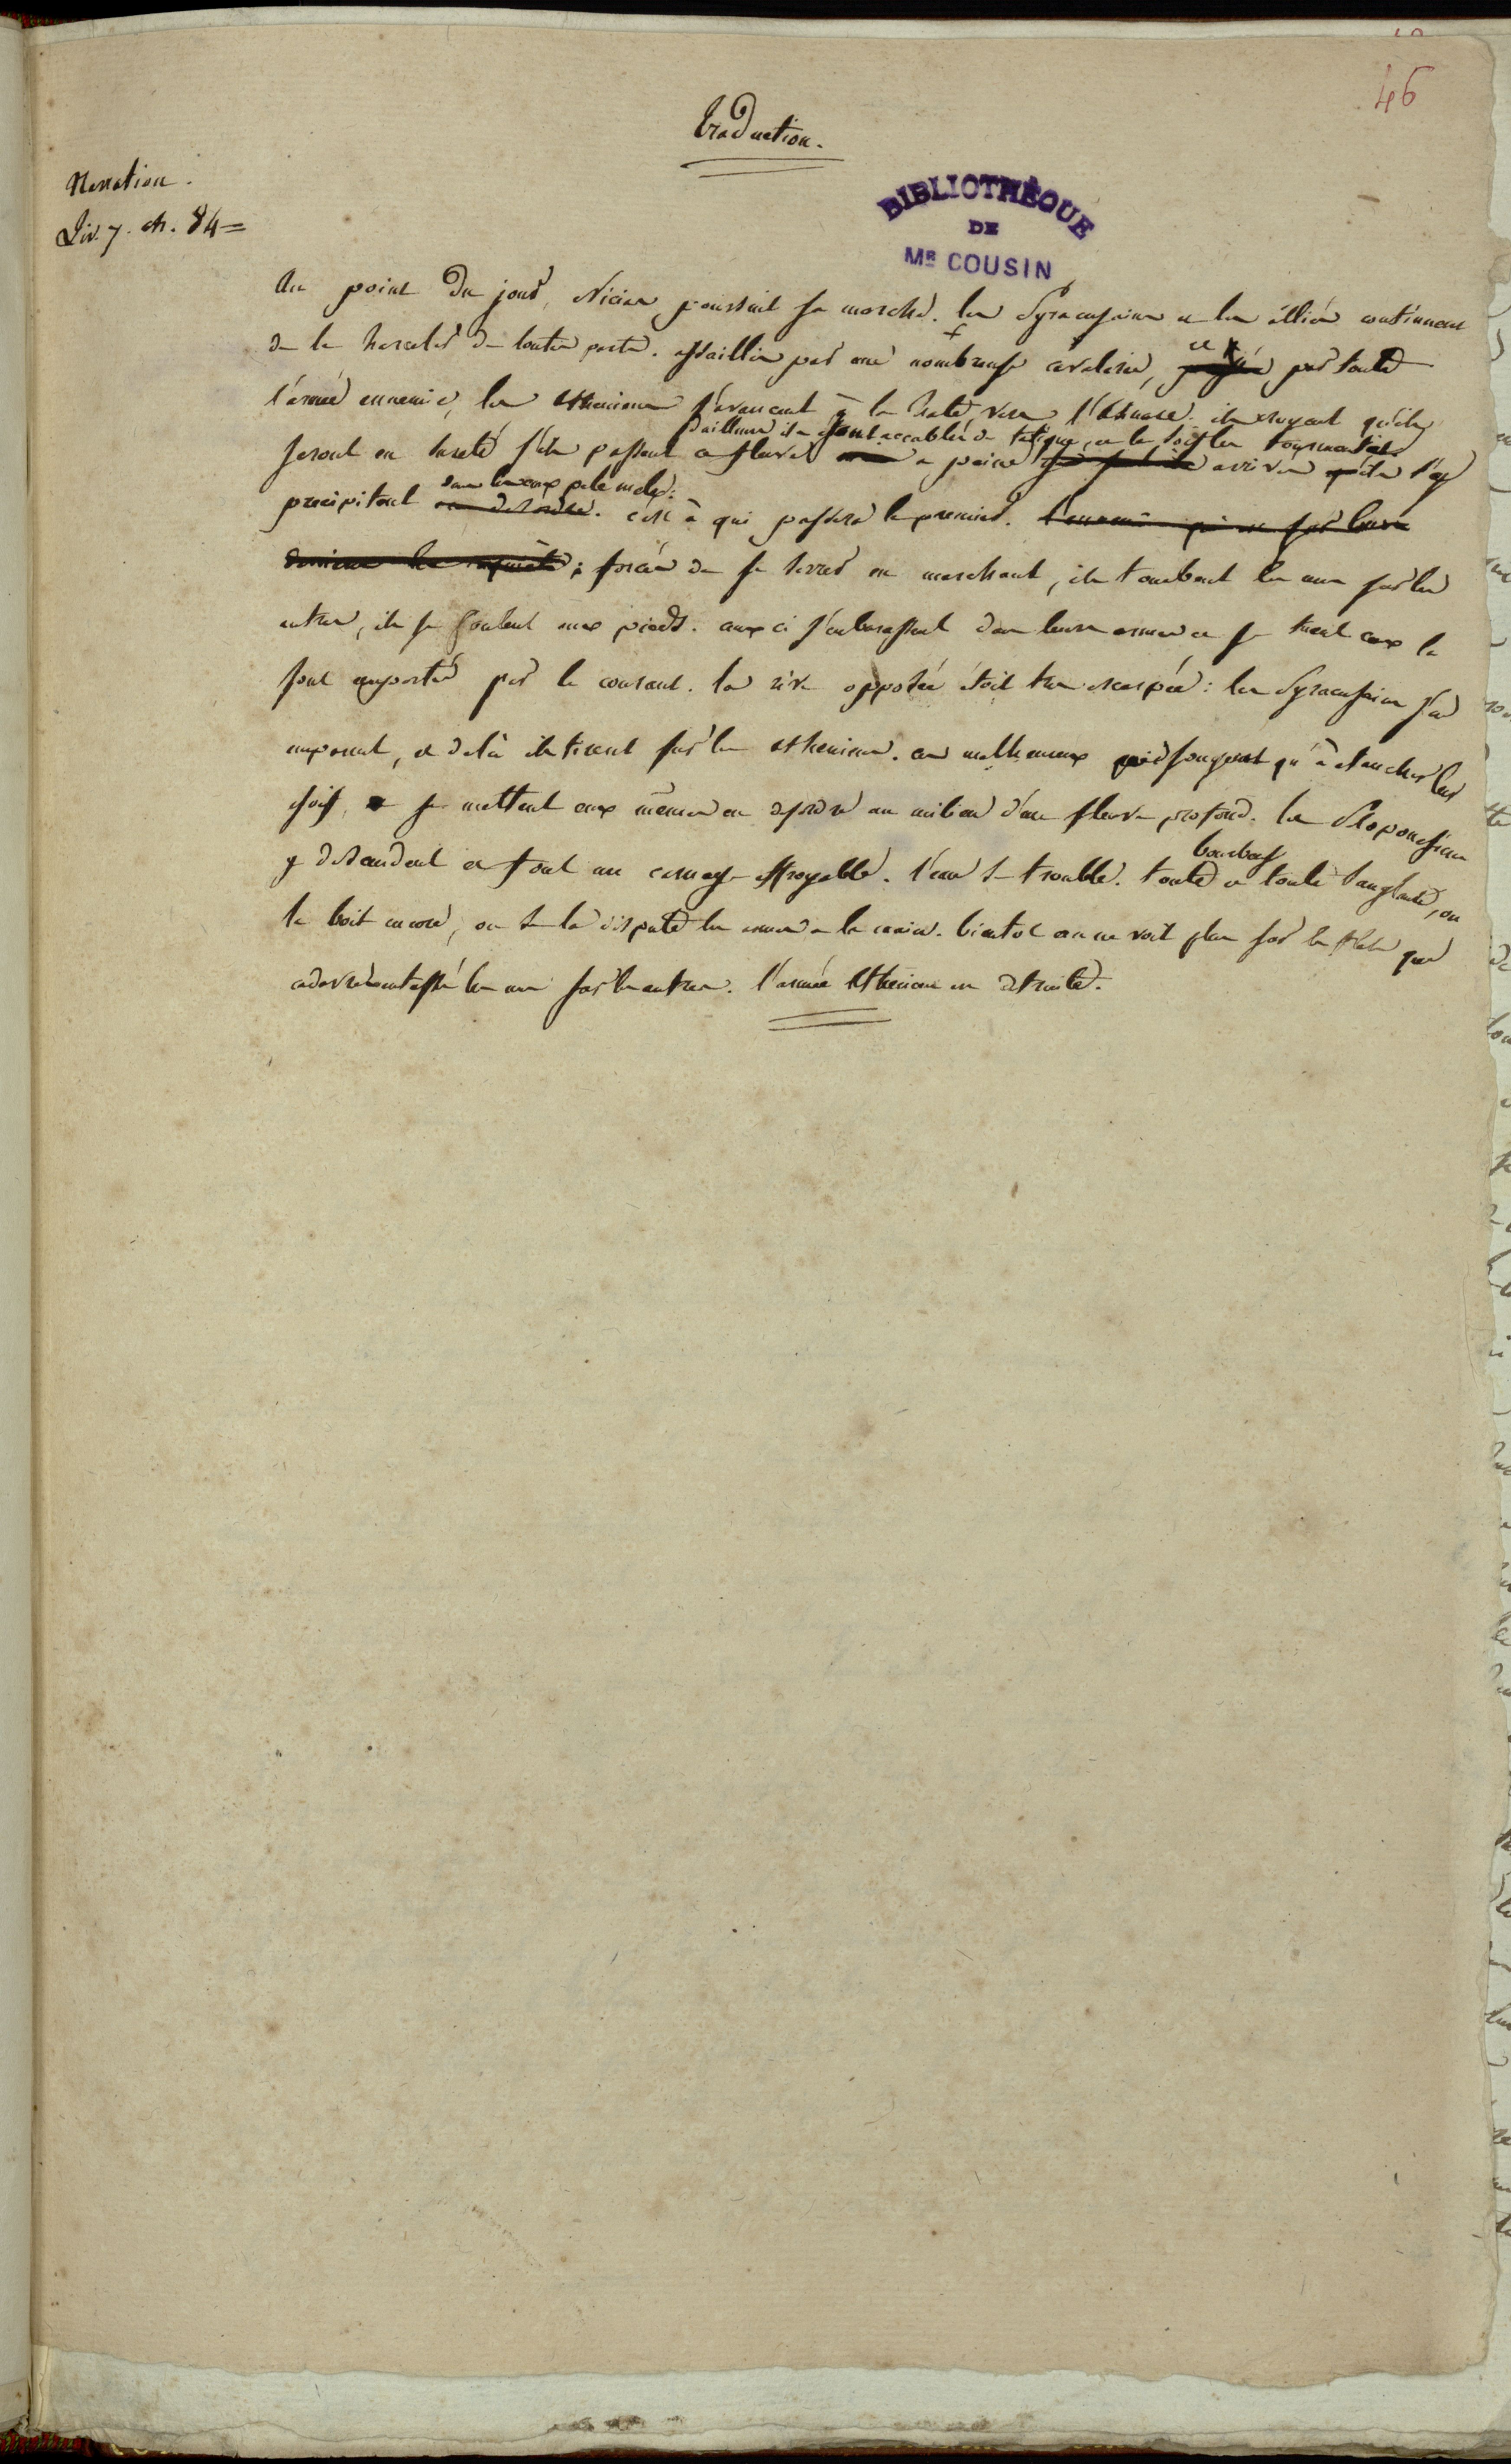 46
Traduction.
Narration.
Liv. 7. ch. 84=
BIBLIOTHÈQUE
DE
MR COUSIN
Au point du jour, Nicias poursuit sa marche. les Syracusains et les alliés continuent
de le harceler de toutes parts. assaillis par une nombreuse cavalerie, et par toute
l'armée ennemie, les Atheniens s'avancent à la hate vers l'Asinare. ils croyent qu'ils
d'ailleurs ils sont accablés de fatigue, et la soif les tourmente.
seront en sureté s'ils passent ce fleuve a peine arrivés ils s'y
dans les eaux pele mele:
precipitent en desordre. c'est à qui passera le premier. l'ennemi
inquiete; forcés de se serrer en marchant, ils tombent les uns sur les
autres, ils se foulent aux pieds. ceux ci s'embarassent dans leurs armes et se tuent ceux la
sont emportés par le courant. la rive opposée étoit tres escarpée: les Syracusains s'en
emparent, et delà ils tirent sur les Atheniens. ces malheureux songent qu'à etancher leur
soif, se mettent eux mêmes en desordre au milieu d'un fleuve profond. les Peloponesiens
bourbeuse
y descendent et font un carnage effroyable. l'eau se trouble. toute et toute sanglante, on
la boit encore, on se la dispute les armes a la main. bientot on ne voit plus sur le fleuve que
cadavres entassés les uns sur les autres. l'armée Athenienne est detruite.